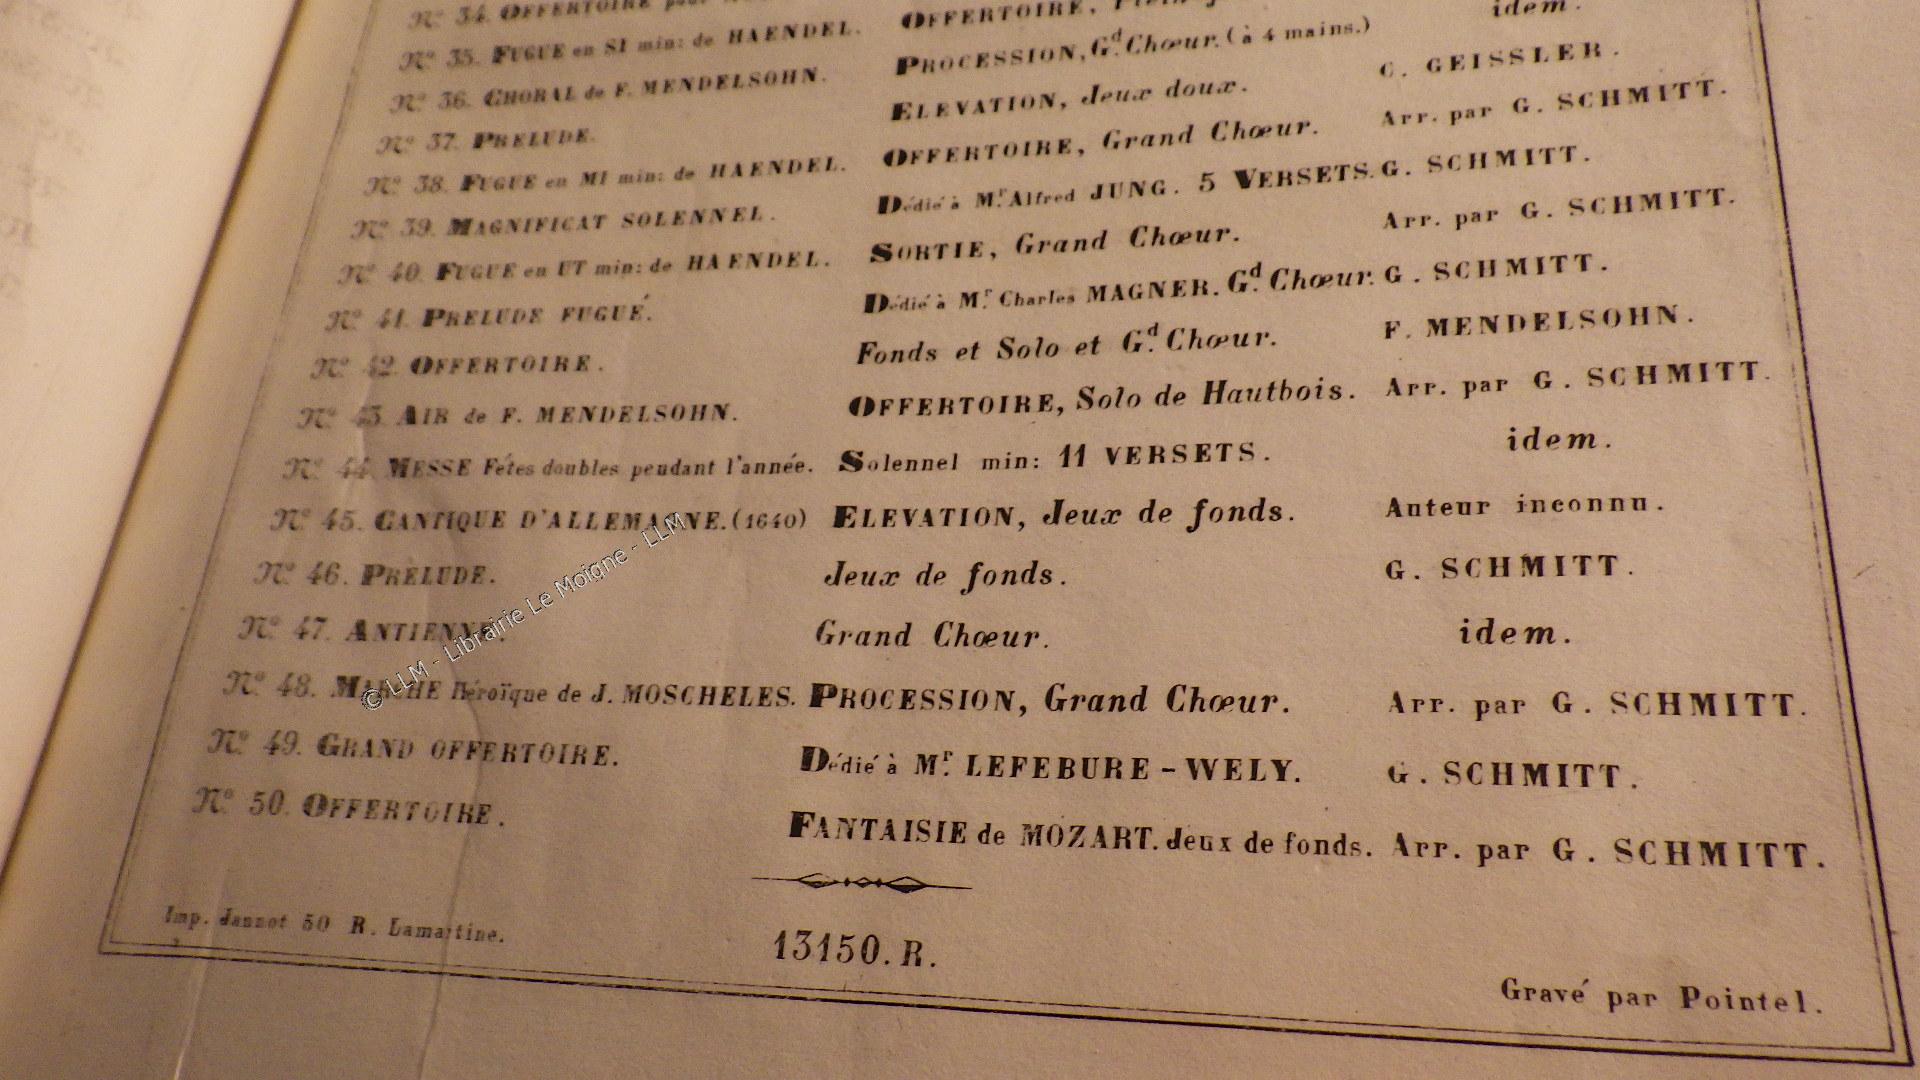 Nº 34. OFFERTOIRE pour
Nº 35. FUGUE en SI min: de HAENDEL. OFFERTOIRE,
Nº 36. CHORAL de F. MENDELSOHN. PROCESSION, Gd. Chœur. (à 4 mains.) idem.
Nº 37. PRELUDE. ELEVATION, Jeux doux. C. GEISSLER.
Nº 38. FUGUE en MI min: de HAENDEL. OFFERTOIRE, Grand Chœur. Arr. par G. SCHMITT.
Nº 39. MAGNIFICAT SOLENNEL. Dédié à Mr. Alfred JUNG. 5 VERSETS. G. SCHMITT.
Nº 40. FUGUE en UT min: de HAENDEL. SORTIE, Grand Chœur. Arr. par G. SCHMITT.
Nº 41. PRELUDE FUGUÉ. Dédié à Mr. Charles MAGNER. Gd. Chœur. G. SCHMITT.
Nº 42. OFFERTOIRE. Fonds et Solo et Gd. Chœur. F. MENDELSOHN.
Nº 43. AIR de F. MENDELSOHN. OFFERTOIRE, Solo de Hautbois. Arr. par G. SCHMITT.
Nº 44. MESSE Fêtes doubles pendant l'année. Solennel min: 11 VERSETS. idem.
Nº 45. CANTIQUE D'ALLEMAGNE. (1640) ELEVATION, Jeux de fonds. Auteur inconnu.
Nº 46. PRELUDE. Jeux de fonds. G. SCHMITT.
Nº 47. ANTIENNE. Grand Chœur. idem.
Nº 48. MARCHE Héroïque de J. MOSCHELES. PROCESSION, Grand Chœur. Arr. par G. SCHMITT.
Nº 49. GRAND OFFERTOIRE. Dédié à Mr. LEFEBURE-WELY. G. SCHMITT.
Nº 50. OFFERTOIRE. FANTAISIE de MOZART. Jeux de fonds. Arr. par G. SCHMITT.
Imp. Jannot 50 R. Lamartine.
13150. R.
Gravé par Pointel.
© LLM - Librairie Le Moigne - LLM